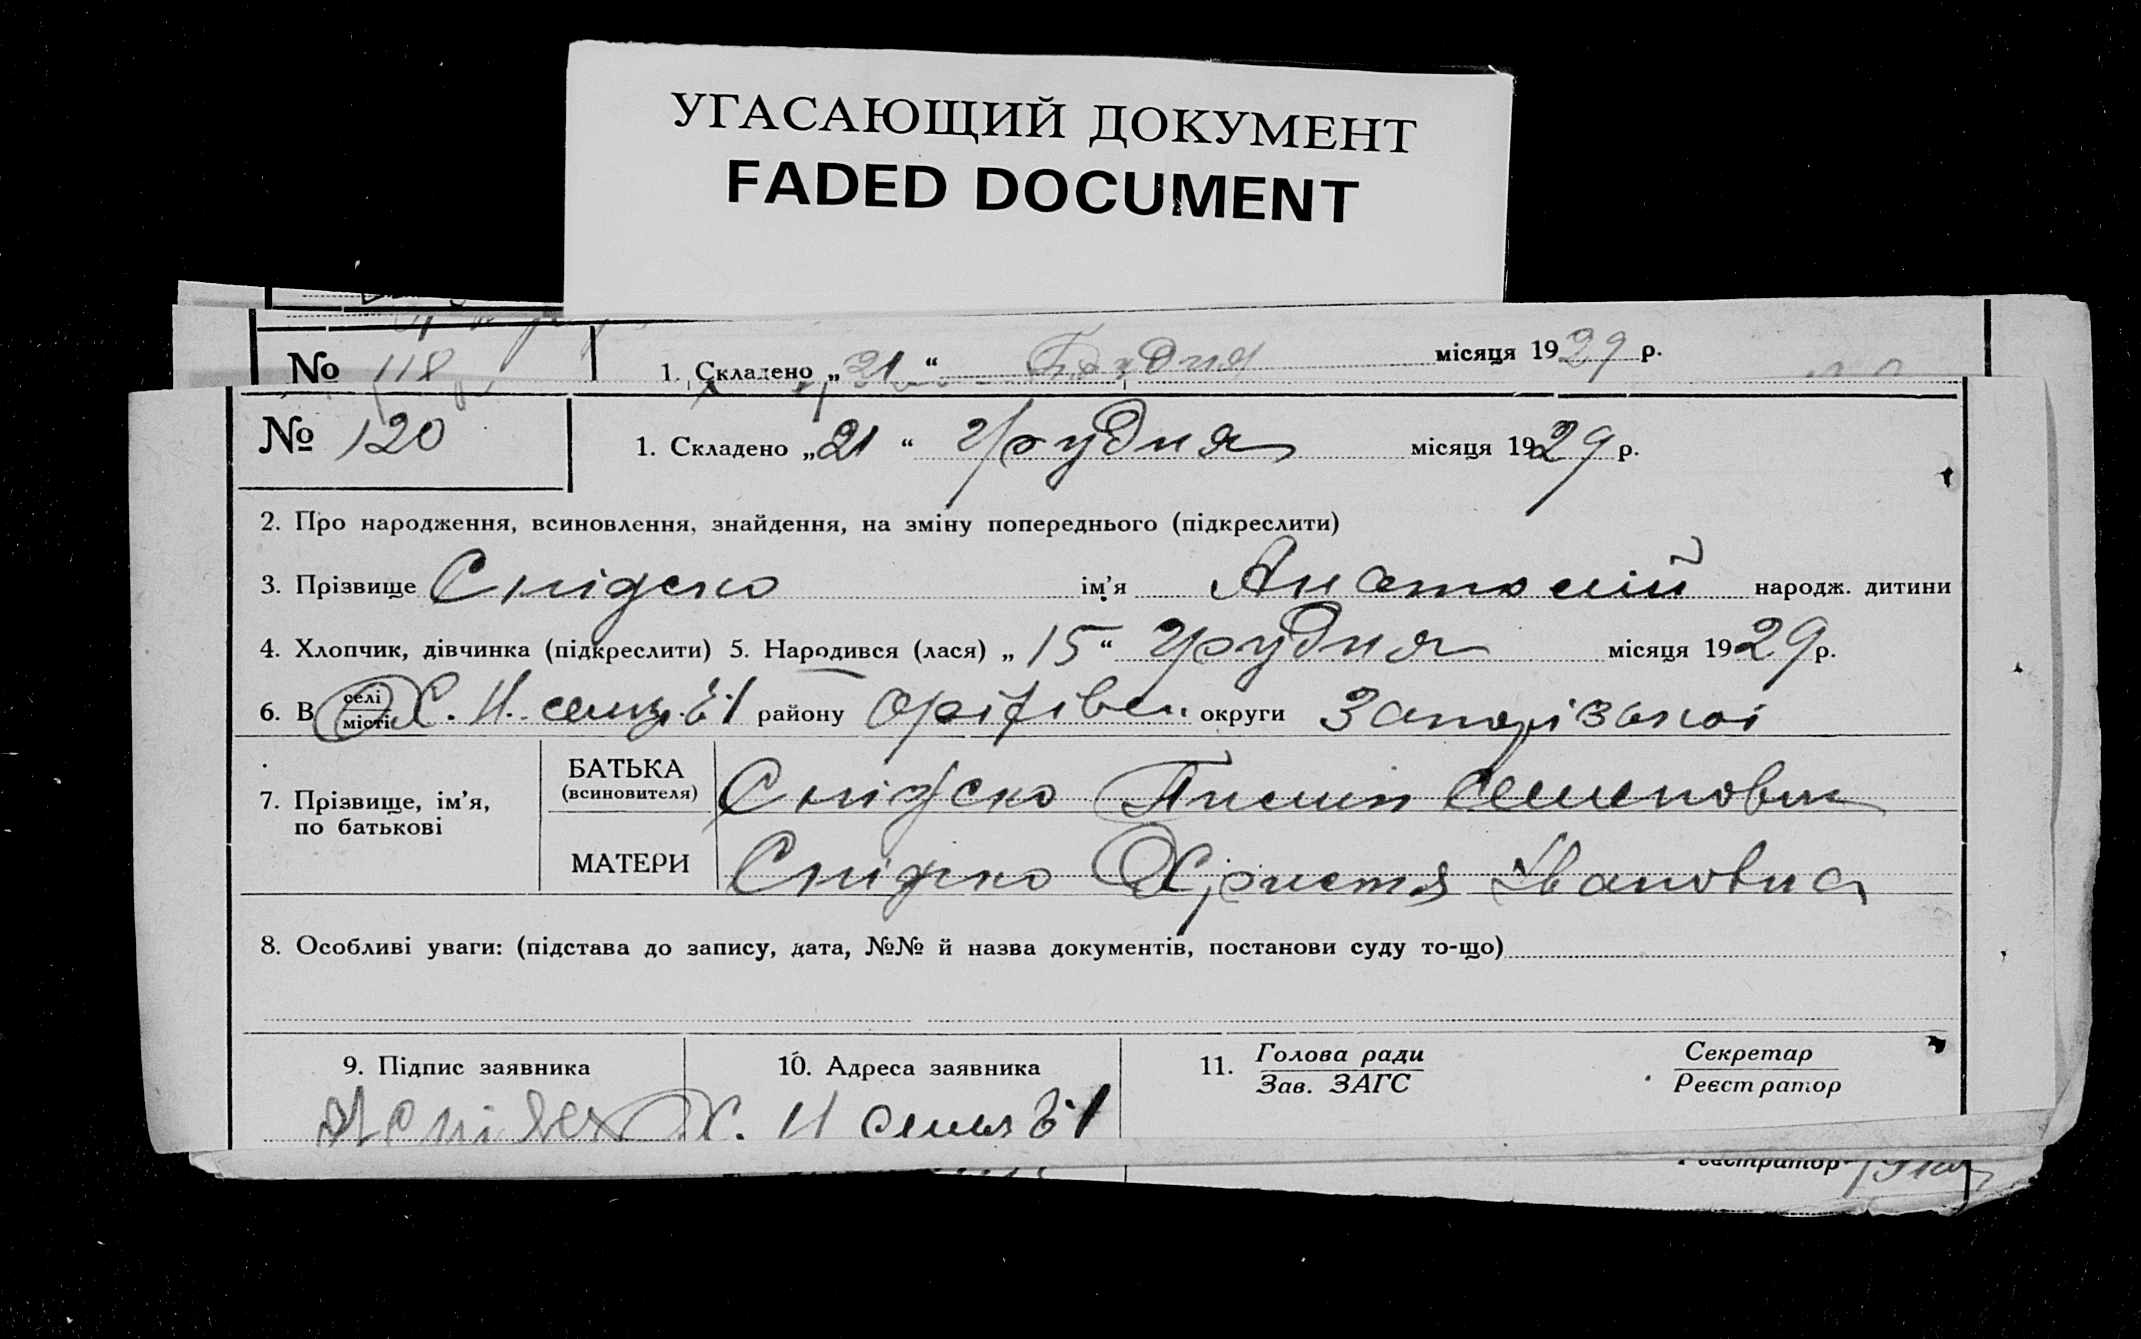 УГАСАЮЩИЙ ДОКУМЕНТ
FADED DOCUMENT
№ 118 1. Складено „21“ Грудня місяця 1929 р.
№ 120 1. Складено „21“ грудня місяця 1929 р.
2. Про народження, всиновлення, знайдення, на зміну попереднього (підкреслити)
3. Прізвище ім’я Анатолій народж. дитини
4. Хлопчик, дівчинка (підкреслити) 5. Народився (лася) „15“ грудня місяця 1929 р.
6. В селі місті Х. району округи Запорізької
7. Прізвище, ім’я, по батькові
БАТЬКА (всиновителя) Семенович
МАТЕРИ Христя Івановна
8. Особливі уваги: (підстава до запису, дата, №№ й назва документів, постанови суду то-що)
9. Підпис заявника 10. Адреса заявника 11. Голова ради Секретар
Зав. ЗАГС Реєстратор
Х.
Реєстратор